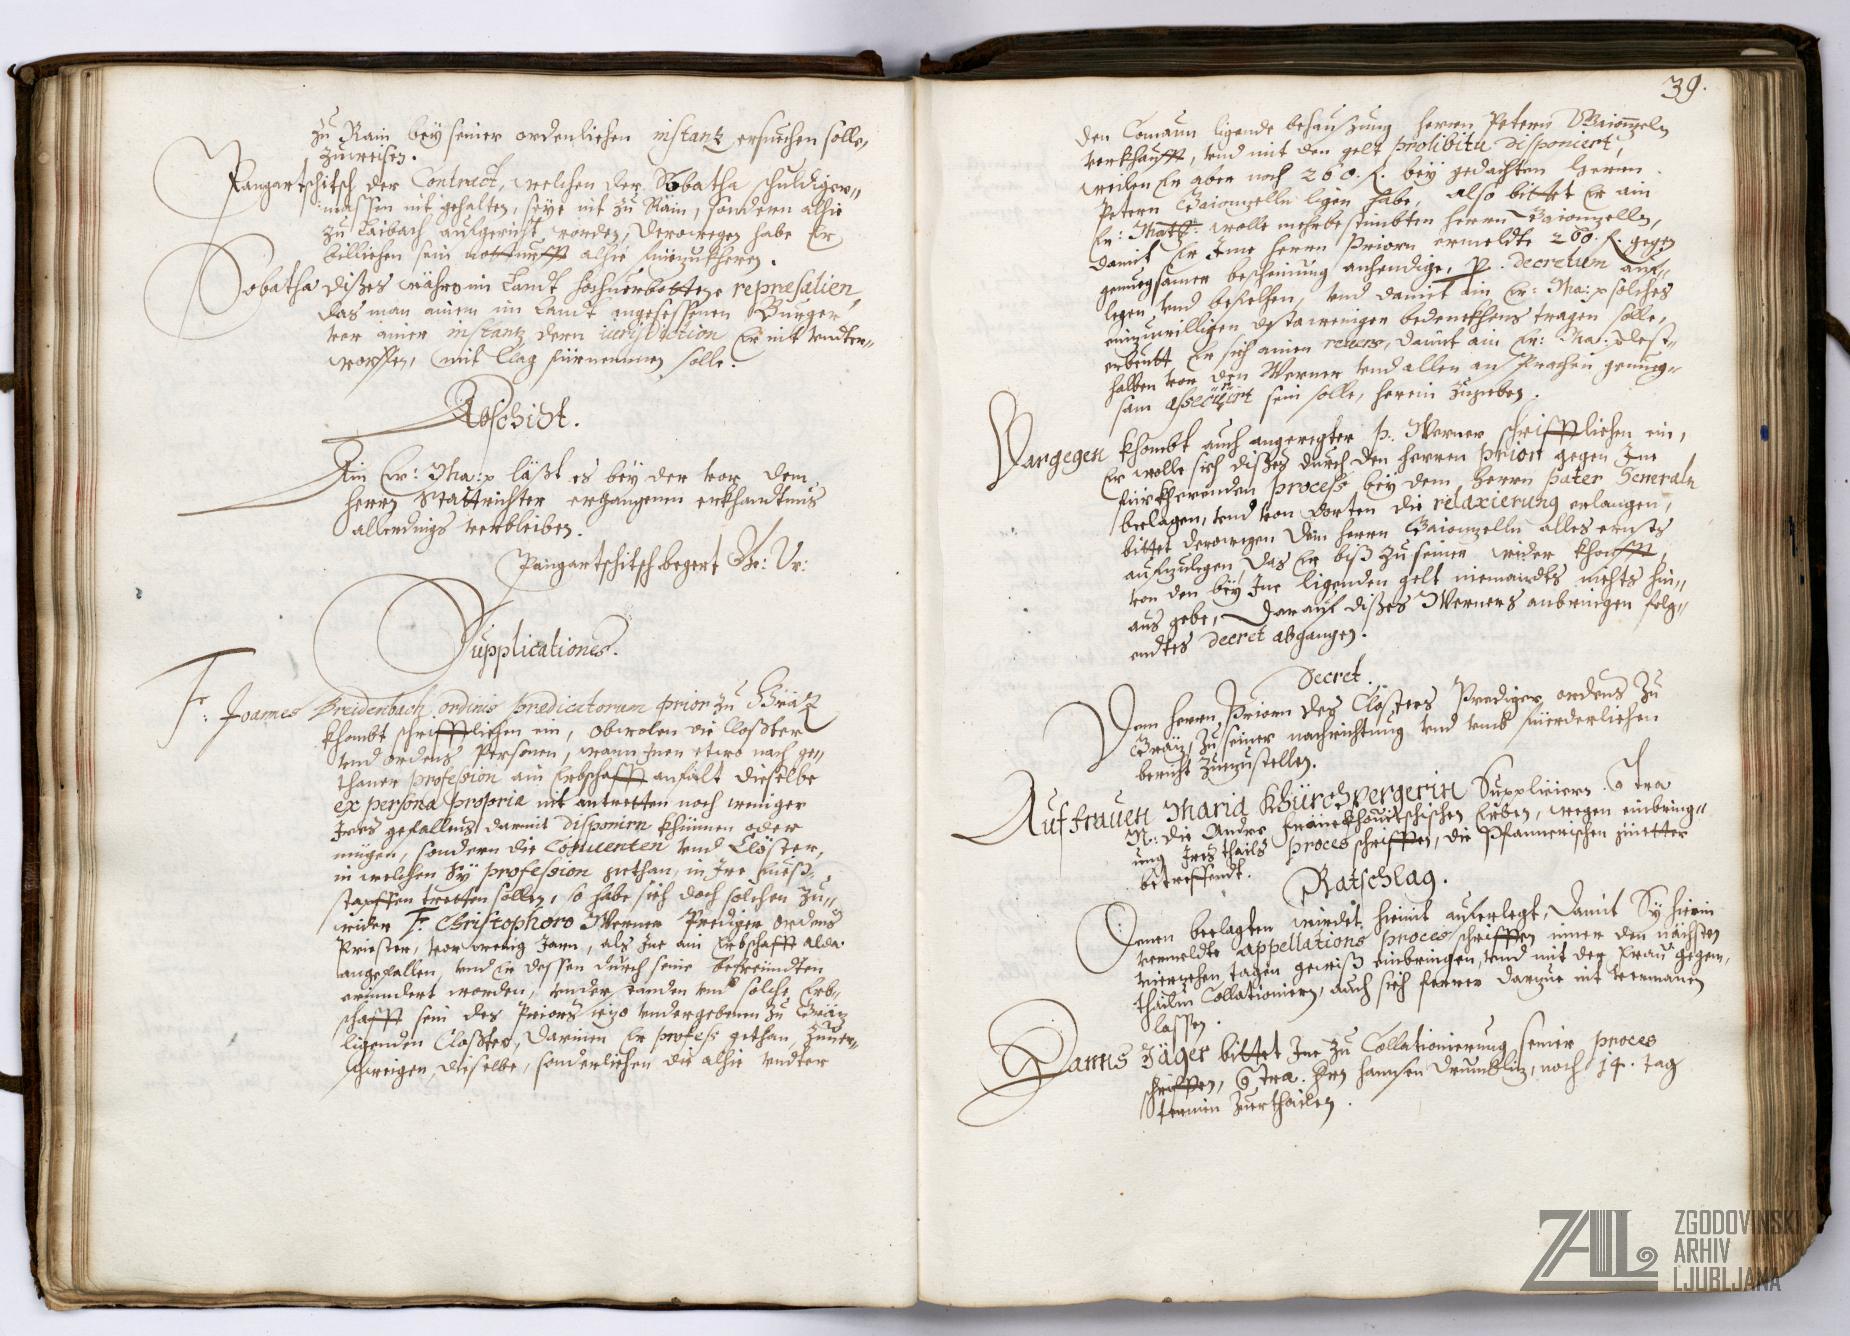 zu Rain beÿ seiner ordenlichen instantz ersuechen solle,
zuweisen.
Pangartschitsch der Contract, welchen der Sobatha schuldiger„
massen nit gehalten, seÿe nit zu Rain, sondern alhie
zu Laibach aufgericht worden, derowegen habe Er
billichen sein notturfft alhie fürzukheren.
Sobatha dißes währe im Landt hochuerbottene repræsalien
das man ainem im Landt angesessenen Burger
vor ainer instantz dern iurisdiction Er nit vndter„
worffen, mit Clag fürnemmen solle.
Abschidt.
Ain Er: Ma: läßt es beÿ der vor dem
herrn Stattrichter ergangenen erkhandtnus
allerdings verbleiben.
Pangartschitsch begert
Supplicationes.
F: Joannes Breidenbach ordinis prædicatorum prior zu Gräz
khombt schrifftlichen ein, obwolen die Closter
vnd ordens Personen, wann Inen etwas nach ge„
thaner profession ain Erbschafft anfält dieselbe
ex persona propria nit antretten noch weniger
Ires gefallens darmit disponirn khünnen oder
mügen, sondern die Conuenten vnd Clöster,
in welchen Sÿ profession gethan, in Ire fuess„
stapffen tretten sollen, so habe sich doch solchen zu„
wider F: Christophoro Werner Prediger ordens
Priester, vor wenig Jarn, als Ime ain Erbschafft alda
angefallen, vnd Er dessen durch seine befreündten
erindert worden, vnder solche Erb„
schafft sein des Priors vndergebenen zu Gräz
ligenden Closter, darinen Er profess gethan, zuuer„
schweigen, dieselbe, sonderlichen die alhie vndter
39.
den ligende behaußung herrn Petern
verkhaufft, vnd mit den gelt prolibitu disponiert,
weilen Er aber noch 260. f. beÿ gedachten herrn
Petern ligen habe, also bittet Er ain
Er: wolle mehrbestimbten herrn
damit Er Ime herrn Priorn ermeldte 260. f. gegen
genuegsamer bescheinung anhendige, p. decretum auf„
legen vnd befelhen, vnd damit ain Er: Ma: solches
einzuwilligen destoweniger bedenckhens tragen solle,
erbeutt Er sich ainen revers, damit ain Er: Ma: dest„
halben vor den Werner vnd allen an sprachen genueg„
sam assecuriert sein solle, herein zugeben.
Dargegen khombt auch angeregter P. Werner schrifftlichen ein,
Er wolle sich dißes durch den herren priorn gegen Ime
fürkherenden process beÿ dem herrn Pater Generaln
beclagen, vnd von dorten die relaxierung erlangen,
bittet derowegen dem herrn alles ernsts
aufzulegen das Er biß zu seiner wider khonfft,
von den beÿ Ime ligenden gelt niemandts nichts hin„
aus gebe, darauf dißes Werners anbringen folg„
endtes decret abgangen.
Decret.
Dem herrn Priorn des Closters Prediger ordens zu
Gräz, zu seiner nachrichtung vnd vmb fürderlichen
bericht zuzustellen.
Auf frauen Maria Khürchpergerin Supplicirn
N: die Erben, wegen einbring„
ung Ires thails process schrifften, die
betreffendt.
Ratschlag.
Denen beclagten würdet hiemit auferlegt, damit Sÿ hierin
vermeldte appellations process schrifften inner den nächsten
vierzehen tagen gewiß einbringen, vnd mit der Frau gegen„
thailn Collationiern, auch sich ferrer darzue nit vermanen
lassen.
Jäger bittet Ime zu Collationierung seiner proces
schrifften, noch 14. tag
termin zuerthailen.
ZAL
ZGODOVINSKI
ARHIV
LJUBLJANA